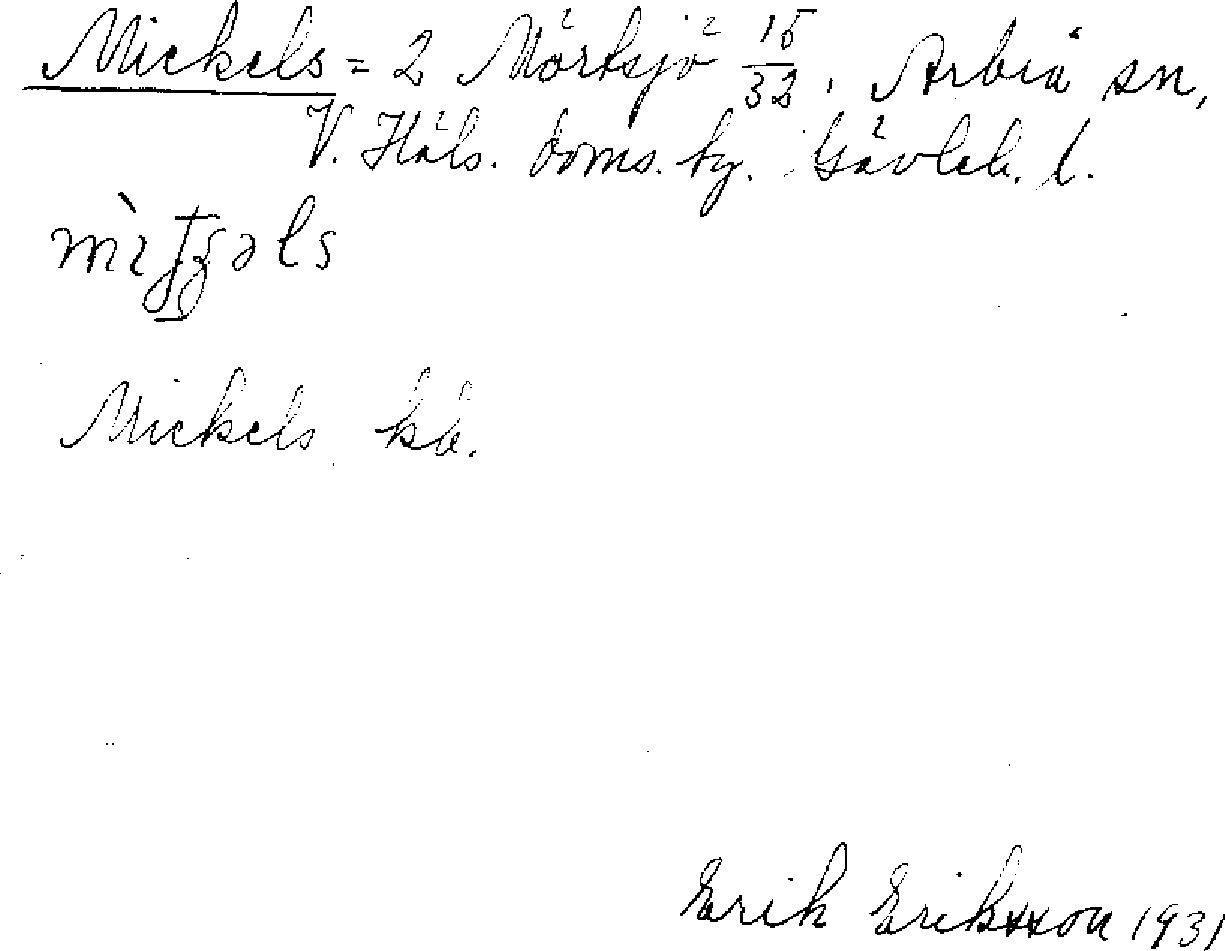 Mickels = 2 Mörtsjö 15/32. Arbrå sn,
V. Häls. doms. hg. Gävleb. l.
Mickels kb.
Erik Eriksson 1931